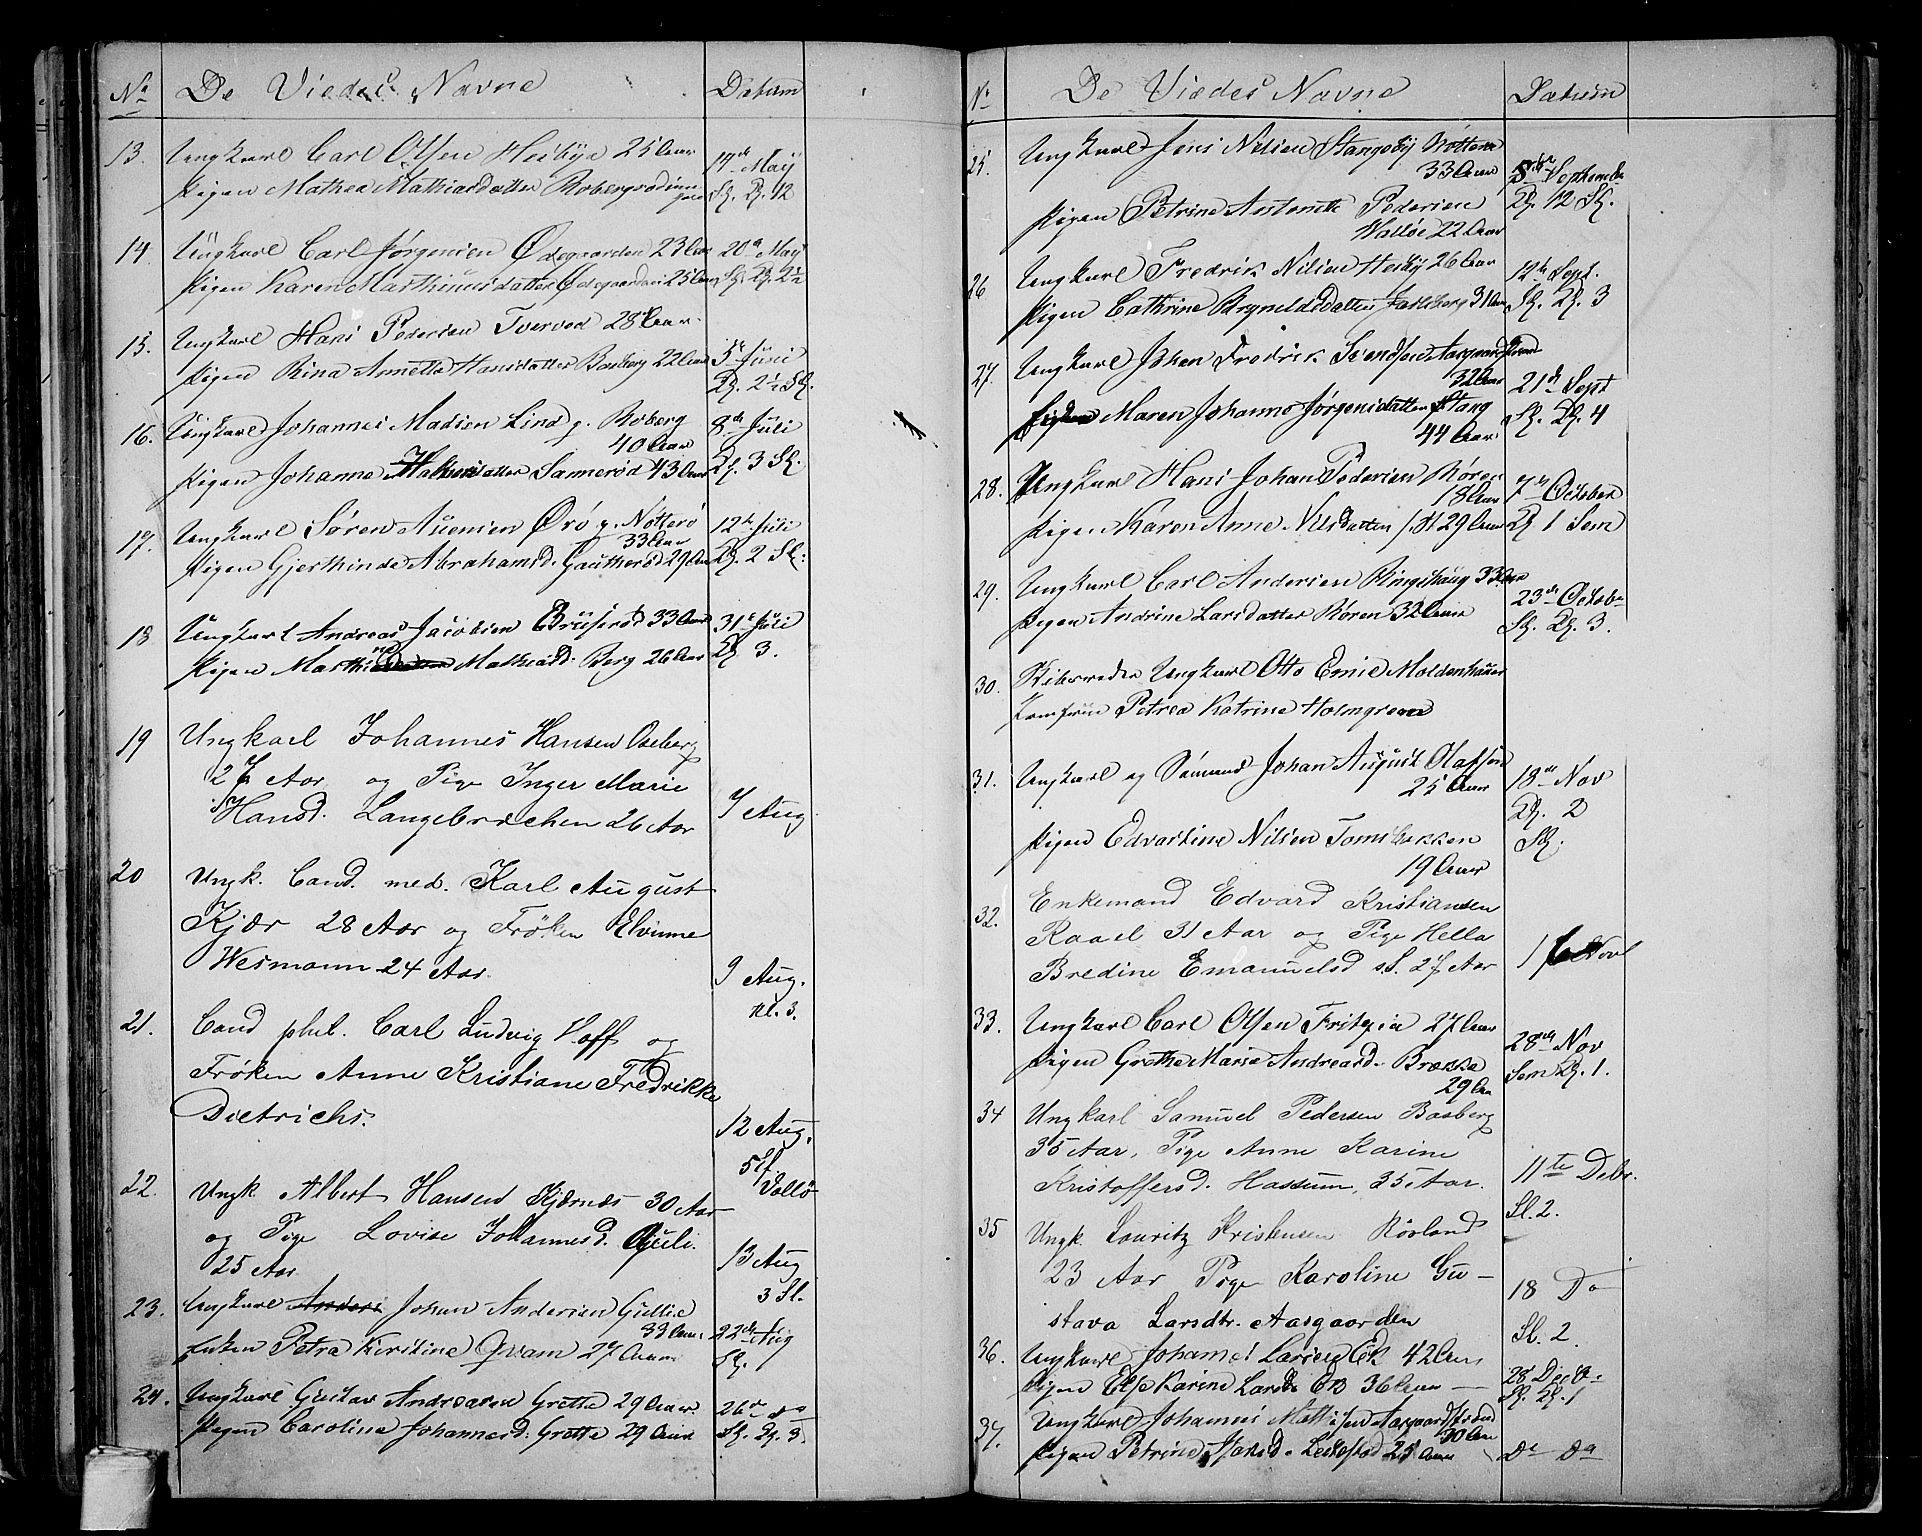 No De Viedes Navne Datum
13. Ungkarl Carl Olsen Hesbye 25 Aar
Pigen Mathea Mathiasdatter Robergsrød
17de May
Kl. 12
14. Ungkarl Carl Jørgensen Ødegaarden 23 Aar 20de May
Pigen Karen Marthinusdatter Ødegaarden 25 Aar
15. Ungkarl Hans Pedersen Tverved 28 Aar
Pigen Rina Annette Hansdatter Basberg 22 Aar 5te Juni
2½ Sl.
16. Ungkarl Johannes Madsen Lind g. Roberg 8de Juli
40 Aar
Pigen Johanne datter Sannerød 43 Aar 3 Sl.
17. Ungkarl Søren Auensen Ørø g. Nøtterø 12te Juli
33 Aar
Pigen Gjerthinde Abrahamsd. Gautherød 29 Aar 2 Sl.
18 Ungkarl Andreas Jacobsen Brüserød 33 Aar 31te Juli
Pigen Marthine Mathiasd. Berg 26 Aar 3.
19 Ungkarl Johannes Hansen Oseberg
27 Aar og Pige Inger Marie
Hansd. Langebrechen 26 Aar 7 Aug
20 Ungk. Cand. med. Karl August
Kjær 28 Aar og Frøken Elvinne
Wesmann 24 Aar. 9 Aug.
Kl. 3.
21. Cand phil. Carl Ludvig Hoff og
Frøken Anne Kristiane Fredrikke
Dietrichs. 12 Aug.
5 Ef.
Vallø
22. Ungk Albert Hansen Kjærnæs 30 Aar
og Pige Lovise Johannesd. Guli
25 Aar 13 Aug
3 Sl.
23. Ungkarl Johan Andersen Gullie
33 Aar 22de Aug
Enken Petra Kirstine Qvam 27 Aar Sl.
24. Ungkarl Gustav Andreasen Grette 29 Aar 26de do
Pigen Caroline Johannesd. Grette 29 Aar Sl. Kl. 3.
No De Viedes Navne Datum
25. Ungkarl Jens Nilsen Stangeby Nøtterø
33 Aar
8de September
Kl. 12 Sl.
Pigen Petrine Antonette Pedersen
Walløe 22 Aar
26 Ungkarl Fredrik Nilsen Hesby 26 Aar 12te Sept.
Pigen Cathrine Brynildsdatter Jarlsberg 31 Aar Sl. Kl. 3
27. Ungkarl Johan Fredrik Svendsen Aasgaardstrand
32 Aar 21de Sept
Maren Johanne Jørgensdatter Stang Sl. Kl. 4
44 Aar
28. Ungkarl Hans Johan Pedersen Røren 7de October
18 Aar
Pigen Karen Anne Nilsdatter 29 Aar Kl 1 Sem
29. Ungkarl Carl Andersen Ringshaug 33 Aar 23de October
Pigen Andrine Larsdatter Røren 32 Aar Sl. Kl. 3.
30. Ungkarl Otto Emil Moldenhauer
Jomfrue Petrea Katrine Holmgreen
31. Ungkarl og Sømand Johan August Olafsen 18de Nov
25 Aar Kl. 2
Pigen Edvardine Nilsen Tomsbakken Sl.
19 Aar
32. Enkemand Edvard Kristiansen
Raael 31 Aar og Pige Hella
Bredine Emanuelsd s.S. 27 Aar 16 Nov
33. Ungkarl Carl Olsen Fritzøe 27 Aar 28de Nov
Pigen Grethe Marie Andreasd. Brække Sem Kl. 1.
29 Aar
34 Ungkarl Samuel Pedersen Basberg
35 Aar, Pige Anne Karine
Kristoffersd. Hassum, 35 Aar. 11te Debr.
Sl. 2.
35 Ungk. Louritz Kristensen Røvland
23 Aar Pige Karoline Gu-
stava Larsdtr. Aasgaarden 18 Do
Sl. 2
36. Ungkarl Johannes Larsen Ek 42 Aar
Pigen Else Karine Larsd. Ek 36 Aar 28 Dec
Sl. Kl. 1
37. Ungkarl Johannes Mathisen Aasgaardstrand
30 Aar
Pigen Petrine Hansd. 25 Aar Do Do